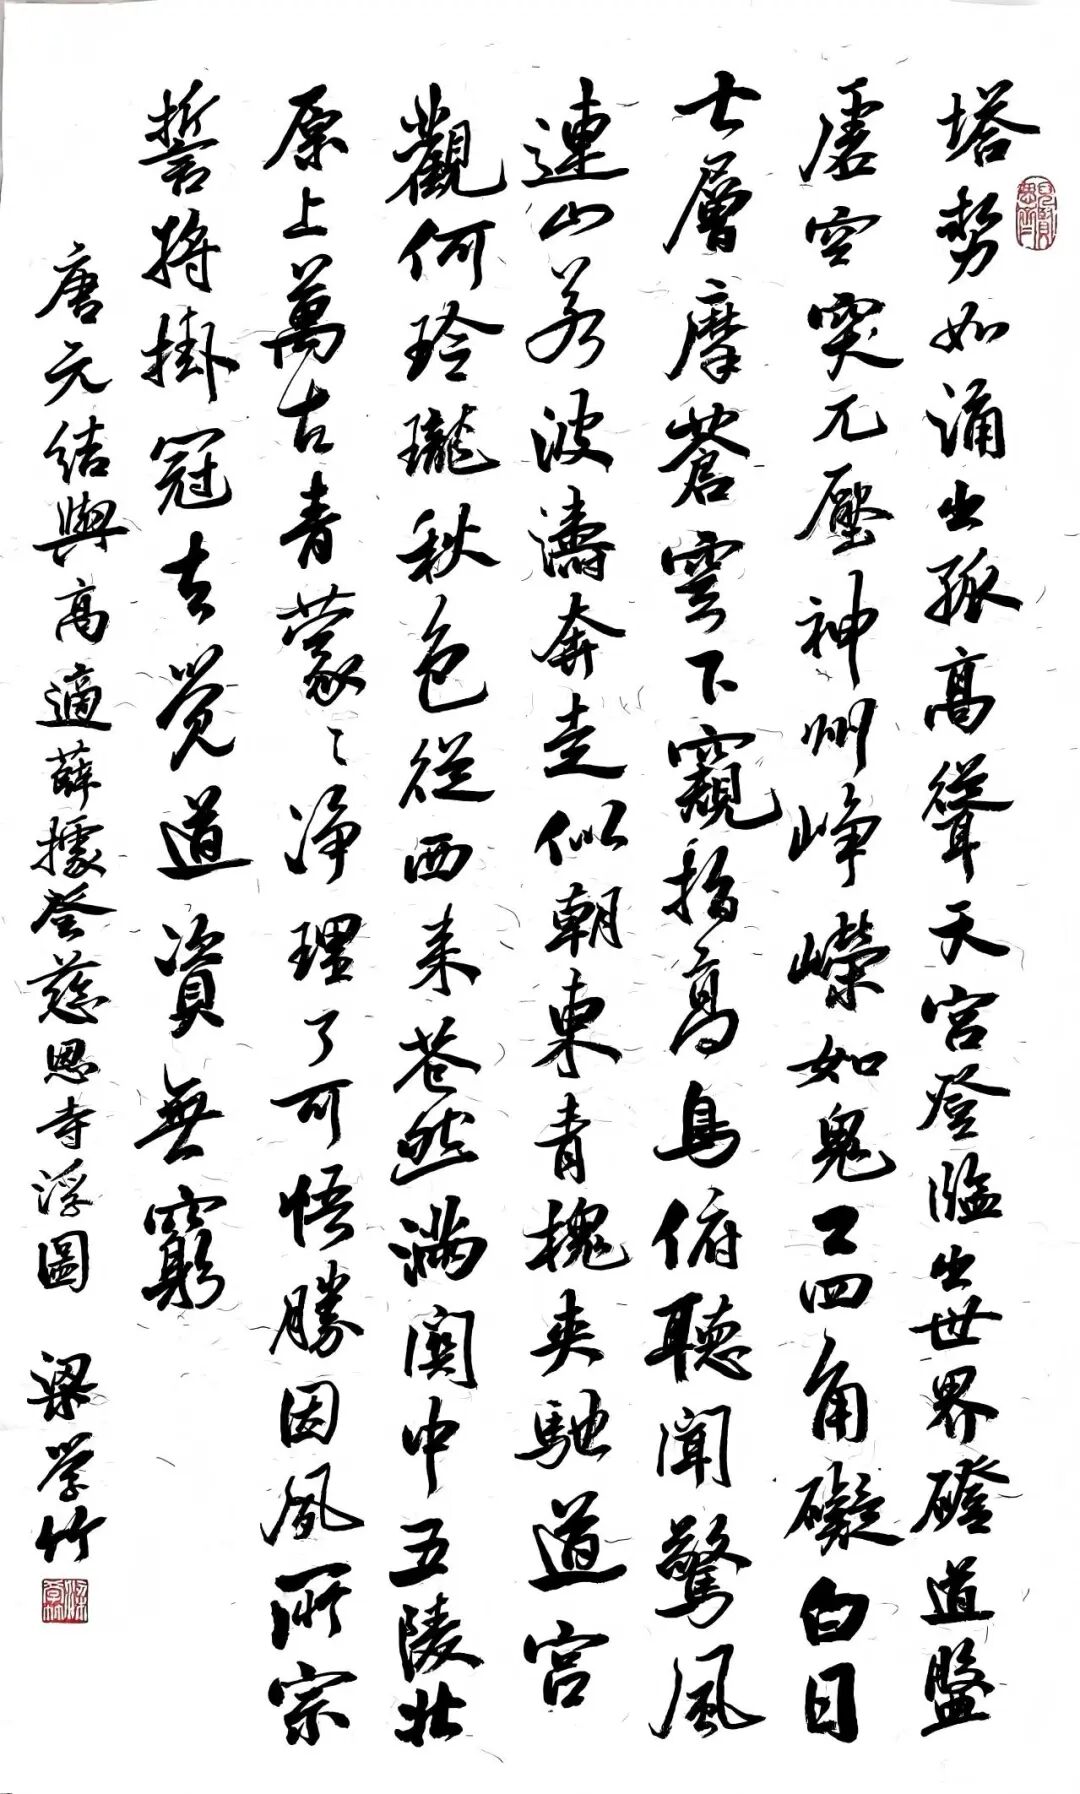 塔勢如涌出孤高聳天宮登臨出世界磴道盤
虛空突兀壓神州崢嶸如鬼工四角礙白日
七層摩蒼穹下窺指高鳥俯聽聞驚風
連山若波濤奔走似朝東青槐夾馳道宮
觀何玲瓏秋色從西來蒼然滿關中五陵北
原上萬古青蒙々净理了可悟勝因夙所宗
誓將掛冠去覺道資無窮
唐元結與高適薛據登慈恩寺浮圖 梁学竹
見賢思齊